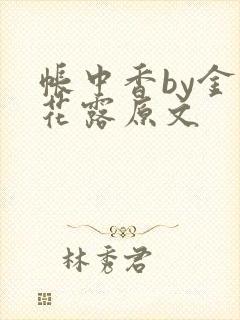 帐中香by金
花露原文
林秀君